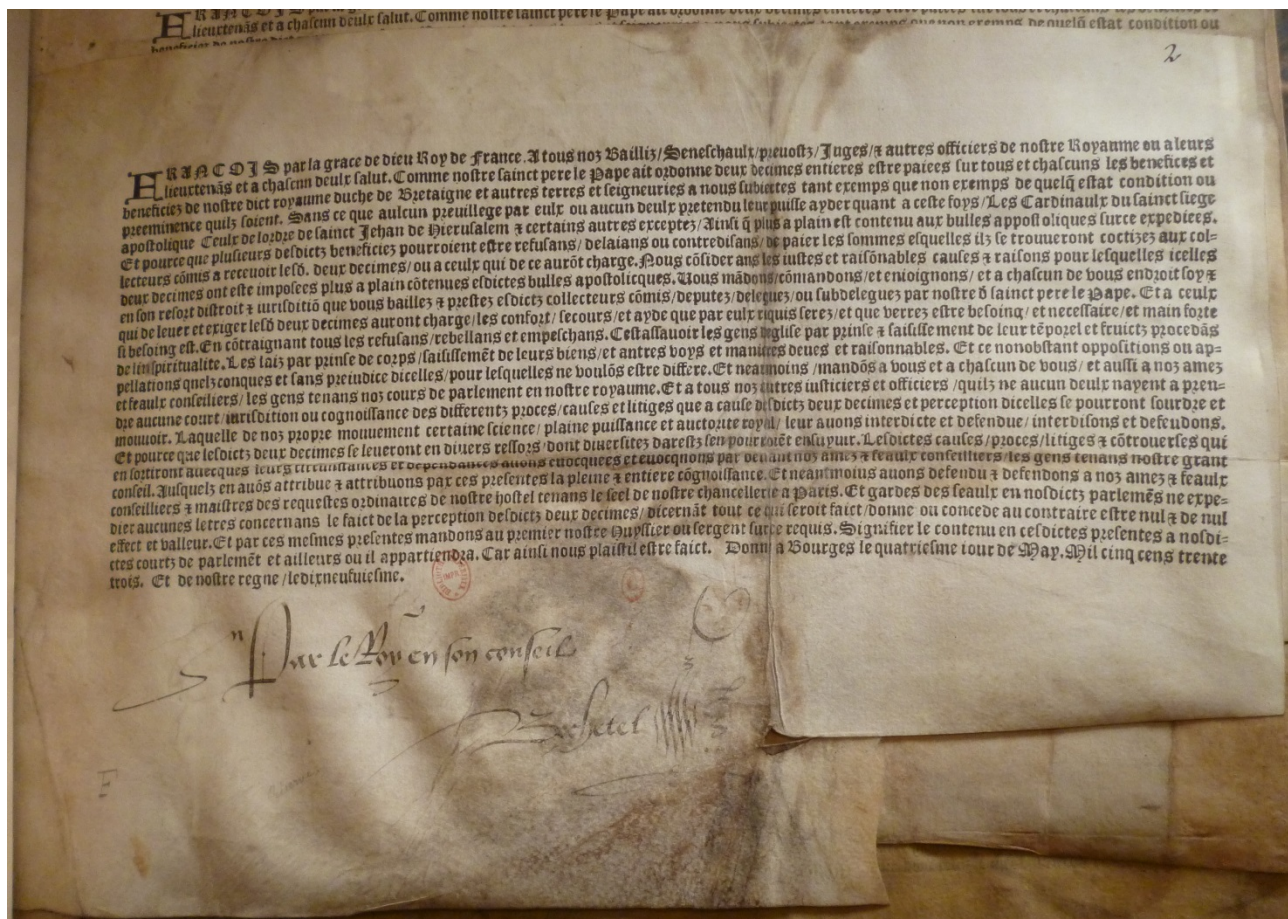 FRANCOIS par la grace de dieu Roy de France. A tous noz
lieutenãs et a chascun deulx salut. Comme nostre sainct pere le Pape ait ordonne deux decimes entieres
que non exemps de quelq̃ estat condition ou
2
FRANCOIS par la grace de dieu Roy de France. A tous noz Bailliz/Seneschaulx/preuostz/Juges/⁊ autres officiers de nostre Royaume ou a leurs
lieutenãs et a chascun deulx salut. Comme nostre sainct pere le Pape ait ordonne deux decimes entieres estre paiees sur tous et chascuns les benefices et
beneficiez de nostre dict royaume duche de Bretaigne et autres terres et seigneuries a nous subiectes tant exemps que non exemps de quelq̃ estat condition ou
preeminence quilz soient. Sans ce que aulcun preuillege par eulx ou aucun deulx pretendu leur puisse ayder quant a ceste foys/Les Cardinaulx du sainct siege
apostolique Ceulx de lordre de sainct Jehan de Hierusalem ⁊ certains autres exceptez/Ainsi q̃ plus a plain est contenu aux bulles appostoliques surce expediees.
Et pource que plusieurs desdictz beneficiez pourroient estre refusans/delaians ou contredisans/de paier les sommes esquelles ilz se trouueront coctizez aux col-
lecteurs cõmis a receuoir lesd. deux decimes/ou a ceulx qui de ce aurõt charge. Nous cõsiderans les iustes et raisõnables causes ⁊ raisons pour lesquelles icelles
deux decimes ont este imposees plus a plain cõtenues esdictes bulles apostolicques. Uous mãdons/cõmandons/et enioignons/et a chascun de vous endroit soy ⁊
en son resort distroit ⁊ iurisditiõ que vous baillez ⁊ prestez esdictz collecteurs cõmis/deputez/deleguez/ou subdeleguez par nostre d sainct pere le Pape. Et a ceulx
qui de leuer et exiger lesd deux decimes auront charge/les confort/secours/et ayde que par eulx riquis serez/et que verrez estre besoing/et necessaire/et main forte
si besoing est. En cõtraignant tous les refusans/rebellans et empeschans. Cestassauoir les gens deglise par prinse ⁊ saisissement de leur tẽporel et fruictz procedãs
de linspiritualite. Les laiz par prinse de corps/saisissemẽt de leurs biens/et antres voys et manieres deues et raisonnables. Et ce nonobstant oppositions ou ap-
pellations quelzconques et sans preiudice dicelles/pour lesquelles ne voulõs estre differe. Et neantmoins/mandõs a vous et a chascun de vous/et aussi a noz amez
et feaulx conseiliers/les gens tenans noz cours de parlement en nostre royaume. Et a tous noz autres iusticiers et officiers/quilz ne aucun deulx nayent a pren-
dre aucune court/iurisdition ou cognoissance des differentz proces/causes et litiges que a cause desdictz deux decimes et perception dicelles se pourront sourdre et
mouuoir. Laquelle de noz propre mouuement certaine science/plaine puissance et auctorite royal/leur auons interdicte et defendue/interdisons et defeudons.
Et pource que lesdictz deux decimes se leueront en diuers ressors/dont diuersitez darestz sen pourroiẽt ensuyuir. Lesdictes causes/proces/litiges ⁊ cõtrouerses qui
en sortiront auecques leurs circunstances et dependances auons euocquees et euocqnons par deuant noz amez ⁊ feaulx conseilliers/les gens tenans nostre grant
conseil. Ausquelz en auõs attribue ⁊ attribuons par ces presentes la pleine ⁊ entiere cõgnoissance. Et neantmoius auons defendu ⁊ defendons a noz amez ⁊ feaulx
conseilliers ⁊ maistres des requestes ordinaires de nostre hostel tenans le seel de nostre chancellerie a Paris. Et gardes des seaulx en nosdictz parlemẽs ne expe-
dier aucunes letres concernans le faict de la perception desdictz deux decimes/dicernãt tout ce qui seroit faict/donne ou concede au contraire estre nul ⁊ de nul
effect et valleur. Et par ces mesmes presentes mandons au premier nostre Huyssier ou sergent surce requis. Signifier le contenu en cesdictes presentes a nosdi-
ctes courtz de parlemẽt et ailleurs ou il appartiendra. Car ainsi nous plaistil estre faict. Donne a Bourges le quatriesme iour de May. Mil cinq cens trente
trois. Et de nostre regne/ledixneufuiesme.
Par le Roy en son conseil
Bochetel